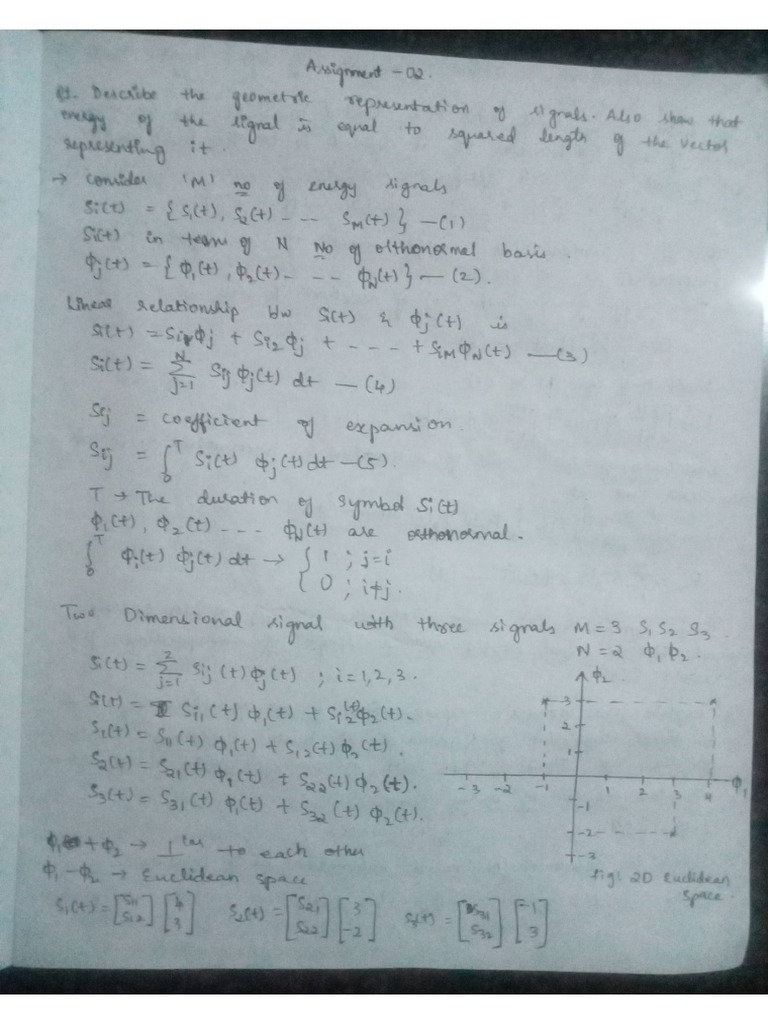 Assignment - 02.
Q1. Describe the geometric representation of signals. Also show that
energy of the signal is equal to squared length of the vector
representing it.
→ consider 'M' no of energy signals
Si(t) = {S1(t), S2(t) - - - - SM(t)} —(1)
Si(t) in team of N No of orthonormal basis.
ϕj(t) = {ϕ1(t), ϕ2(t)- - - - ϕN(t)} — (2).
Linear relationship b/w Si(t) & ϕj(t) is
Si(t) = Si1ϕj + Si2ϕj + - - - - + SiMϕN(t) —(3)
Si(t) = N∑j=1 Sij ϕj(t) dt — (4)
Sij = coefficient of expansion.
Sij = ∫0T Si(t) ϕj(t)dt —(5).
T → The duration of symbol Si(t)
ϕ1(t), ϕ2(t) - - - - ϕN(t) are orthonormal.
∫0T ϕi(t) ϕj(t) dt → { 1 ; j=i
0 ; i≠j.
Two Dimensional signal with three signals M = 3 S1 S2 S3
N = 2 ϕ1 ϕ2.
Si(t) = 2∑j=1 Sij(t)ϕj(t) ; i=1,2,3.
Si(t) = Si1(t) ϕ1(t) + Si2(t)ϕ2(t).
S1(t) = S11(t) ϕ1(t) + S12(t)ϕ2(t).
S2(t) = S21(t) ϕ1(t) + S22(t) ϕ2(t).
S3(t) = S31(t) ϕ1(t) + S32(t) ϕ2(t).
ϕ2
3
2
1
-3 -2 -1 1 2 3 4 ϕ1
-1
-2
-3
fig: 2D Euclidean
space.
ϕ1 + ϕ2 → ⊥lar to each other
ϕ1 - ϕ2 → Euclidean space
S1(t) = [S11 S12] [4 3] S2(t) = [S21 S22] [3 -2] S3(t) = [S31 S32] [-1 3]